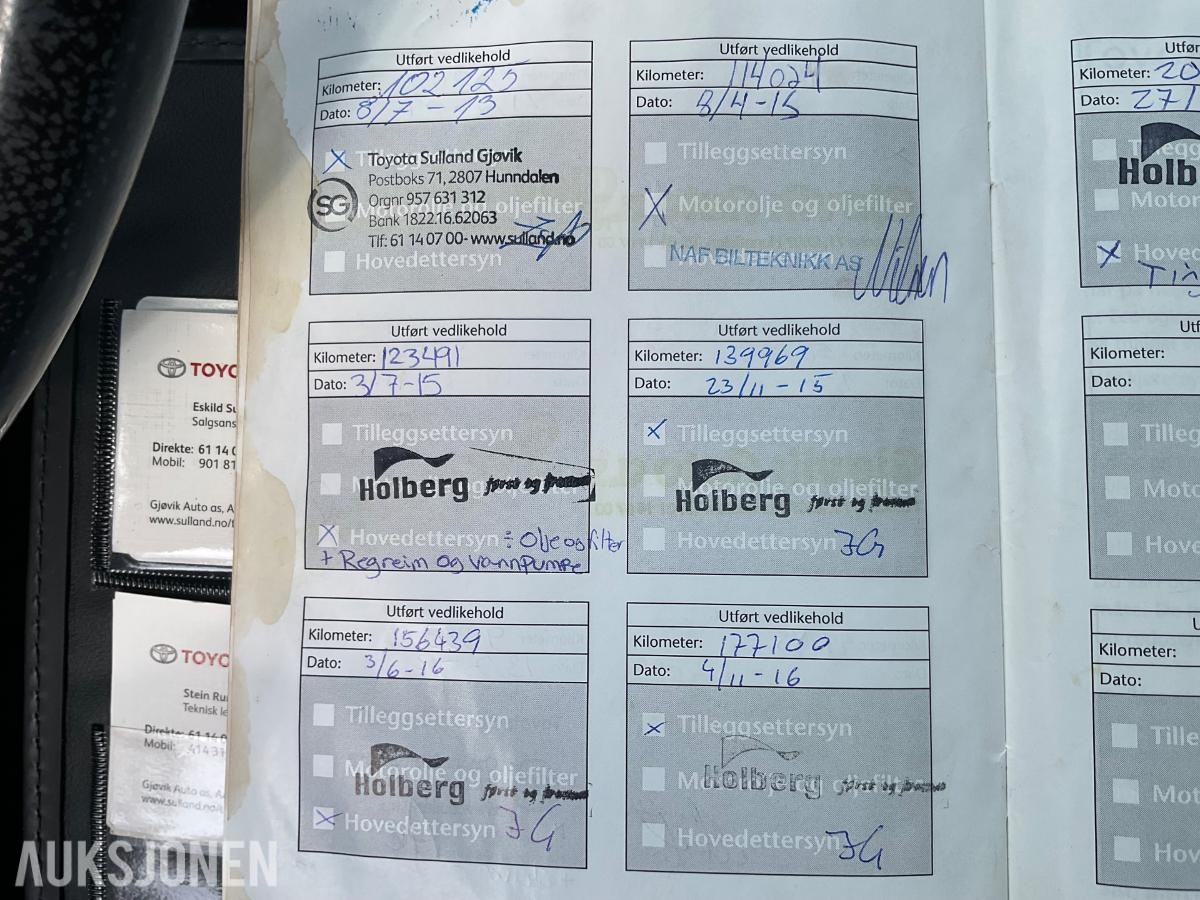 Utført vedlikehold
Kilometer: 102125
Dato: 8/7 - 13
Toyota Sulland Gjøvik
Postboks 71, 2807 Hunndalen
SG
Orgnr 957 631 312
Motorolje og oljefilter
Bank 1822.16.62063
Tlf: 61 14 07 00 - www.sulland.no
Hovedettersyn
Utført vedlikehold
Kilometer: 114024
Dato: 8/4 - 15
Tilleggsettersyn
Motorolje og oljefilter
NAF BILTEKNIKK AS
Utført vedlikehold
Kilometer: 123491
Dato: 3/7-15
Tilleggsettersyn
Holberg først og fremst
Hovedettersyn ÷ Olje og filter
+ Regreim og vannpumpe
Utført vedlikehold
Kilometer: 139969
Dato: 23/11 - 15
Tilleggsettersyn
Motorolje og oljefilter
Holberg først og fremst
Hovedettersyn JG
Utført vedlikehold
Kilometer: 156439
Dato: 3/6 - 16
Tilleggsettersyn
Motorolje og oljefilter
Holberg først og fremst
Hovedettersyn JG
Utført vedlikehold
Kilometer: 177100
Dato: 4/11 - 16
Tilleggsettersyn
Motorolje og oljefilter
Holberg først og fremst
Hovedettersyn JG
Kilometer: 20
Dato: 27/1
Tillegg
Holb
Motor
Hovede
Kilometer:
Dato:
Tillegg
Moto
Hove
Kilometer:
Dato:
Tille
Mot
Hov
TOYO
Eskild Su
Salgsans
Direkte: 61 14 0
Mobil: 901 81
Gjøvik Auto as, A
www.sulland.no/t
TOYO
Stein Ru
Teknisk le
Direkte: 61 14 0
Mobil: 414 37
Gjøvik Auto as, A
www.sulland.no/t
AUKSJONEN